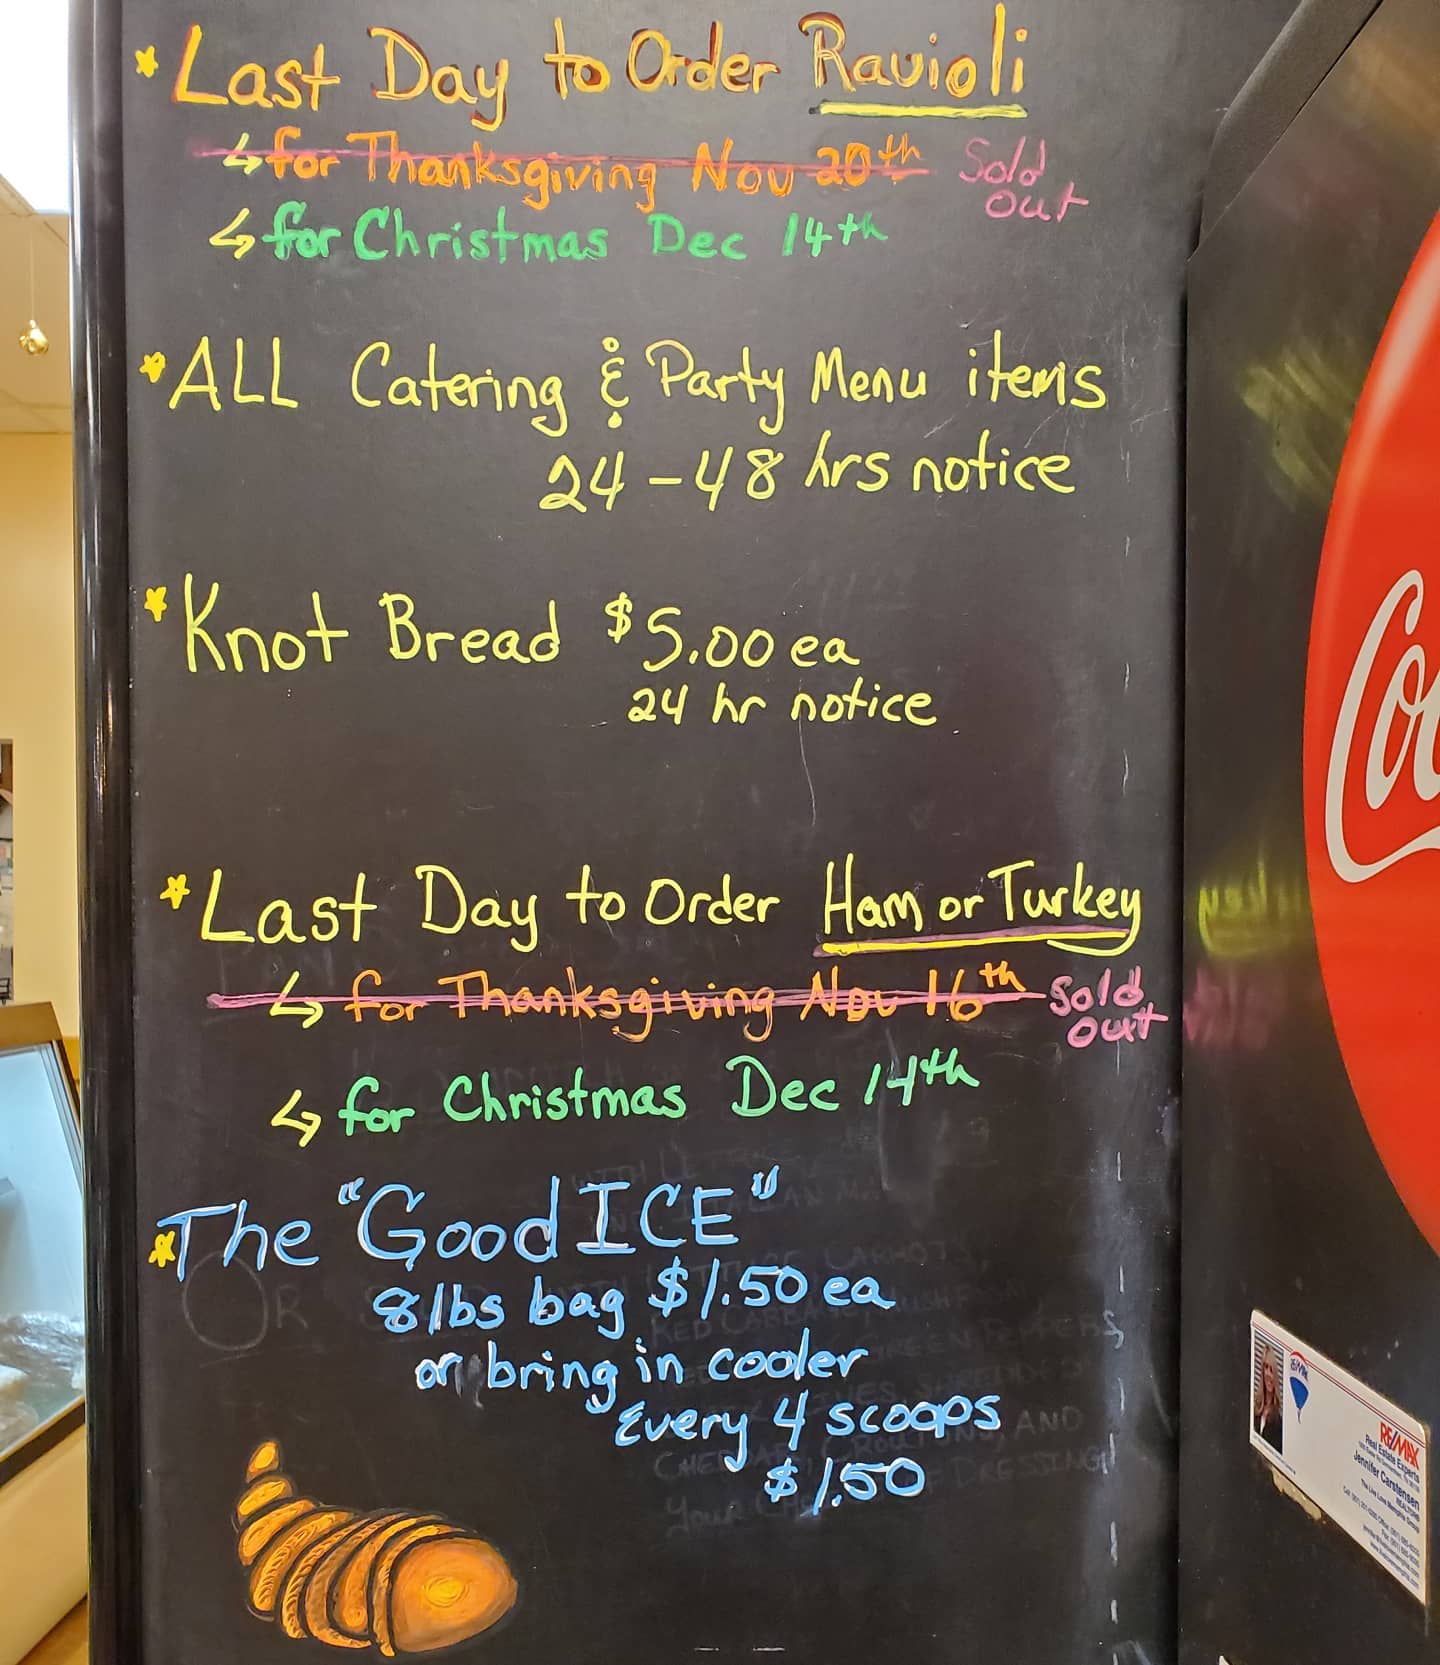 Last Day to Order Ravioli
for Thanksgiving Nov 20th Sold out
for Christmas Dec 14th
ALL Catering & Party Menu items
24-48 hrs notice
Knot Bread $5.00 ea
24 hr notice
Last Day to Order Ham or Turkey
for Thanksgiving Nov 16th Sold out
for Christmas Dec 14th
The "Good ICE"
8 lbs bag $1.50 ea
or bring in cooler
Every 4 scoops
$1.50
OR
Coc
RE/MAX
Real Estate Experts
Jennifer Carstensen
REALTOR®